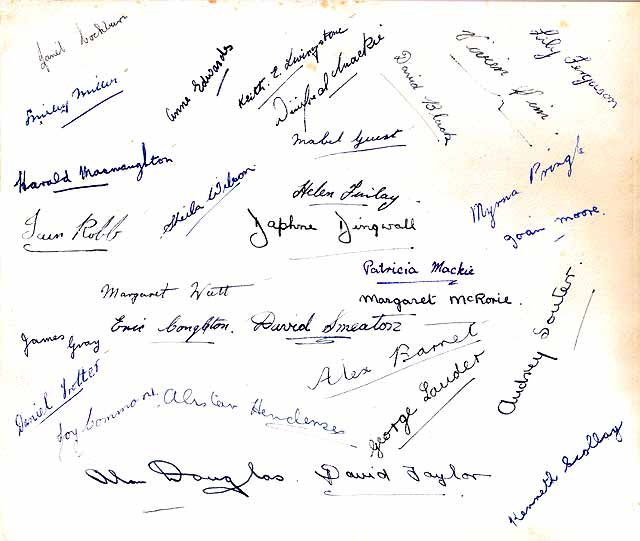 Janet Cockburn
Anne Edwards
Keith. E. Livingstone
Winifred Mackie
David Black
Vivien Pim
Lily Ferguson
Smiley Miller
Mabel Guest
Harold Macnaughton
Sheila Wilson
Helen Finlay
Myrna Pringle
Joan Moore.
Iain Robb
Daphne Dingwall
Patricia Mackie
Margaret Watt
Margaret McRorie.
James Gray
Eric Coughton.
David Smeaton
Audrey Souter.
Alex Barnet
George Lauder
Daniel Trotter
Joy
Alistair Henderson
Alan Douglas.
David Taylor
Kenneth Scollay